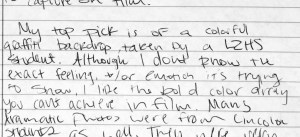 to capture on film.
My top pick is of a colorful
graffiti backdrop taken by a LZHS
student. Although I dont know the
exact feeling, +/or emotion its trying
to show, I like the bold color array
you can't achieve in film. Many
dramatic photos were from Lincoln
as well. They